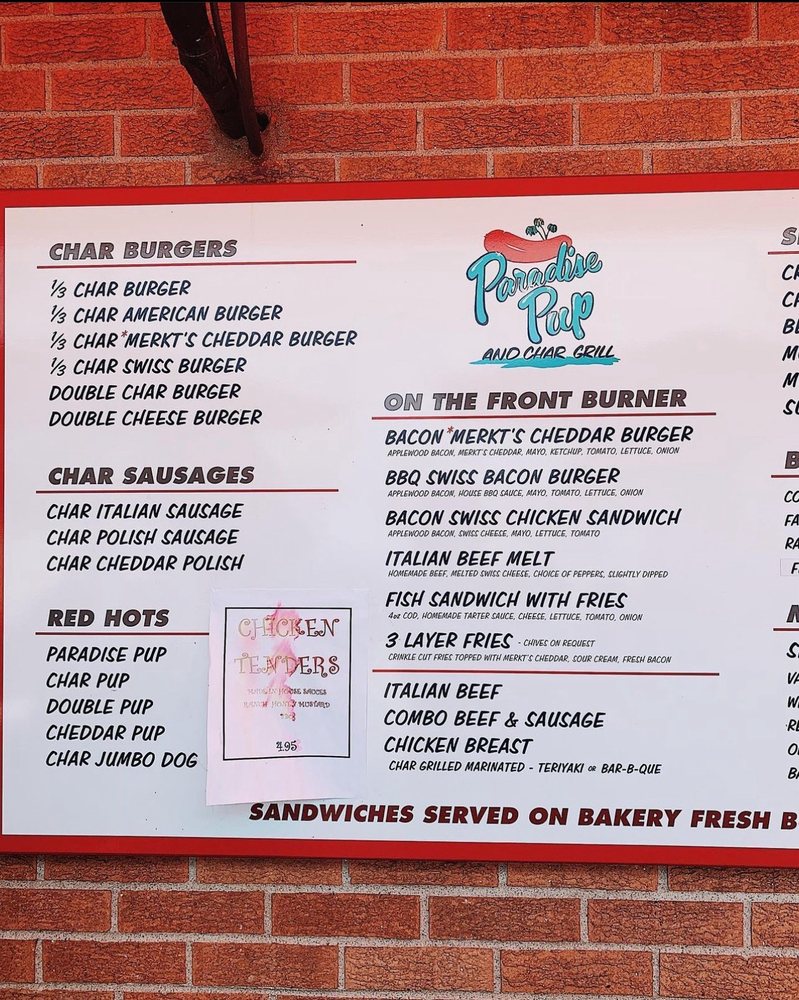 CHAR BURGERS
⅓ CHAR BURGER
⅓ CHAR AMERICAN BURGER
⅓ CHAR *MERKT'S CHEDDAR BURGER
⅓ CHAR SWISS BURGER
DOUBLE CHAR BURGER
DOUBLE CHEESE BURGER
CHAR SAUSAGES
CHAR ITALIAN SAUSAGE
CHAR POLISH SAUSAGE
CHAR CHEDDAR POLISH
RED HOTS
PARADISE PUP
CHAR PUP
DOUBLE PUP
CHEDDAR PUP
CHAR JUMBO DOG
CHICKEN
TENDERS
MADE IN HOUSE SAUCES
RANCH HONEY MUSTARD
BBQ
4.95
Paradise
Pup
AND CHAR GRILL
ON THE FRONT BURNER
BACON *MERKT'S CHEDDAR BURGER
APPLEWOOD BACON, MERKT'S CHEDDAR, MAYO, KETCHUP, TOMATO, LETTUCE, ONION
BBQ SWISS BACON BURGER
APPLEWOOD BACON, HOUSE BBQ SAUCE, MAYO, TOMATO, LETTUCE, ONION
BACON SWISS CHICKEN SANDWICH
APPLEWOOD BACON, SWISS CHEESE, MAYO, LETTUCE, TOMATO
ITALIAN BEEF MELT
HOMEMADE BEEF, MELTED SWISS CHEESE, CHOICE OF PEPPERS, SLIGHTLY DIPPED
FISH SANDWICH WITH FRIES
4oz COD, HOMEMADE TARTER SAUCE, CHEESE, LETTUCE, TOMATO, ONION
3 LAYER FRIES - CHIVES ON REQUEST
CRINKLE CUT FRIES TOPPED WITH MERKT'S CHEDDAR, SOUR CREAM, FRESH BACON
ITALIAN BEEF
COMBO BEEF & SAUSAGE
CHICKEN BREAST
CHAR GRILLED MARINATED - TERIYAKI OR BAR-B-QUE
SANDWICHES SERVED ON BAKERY FRESH B